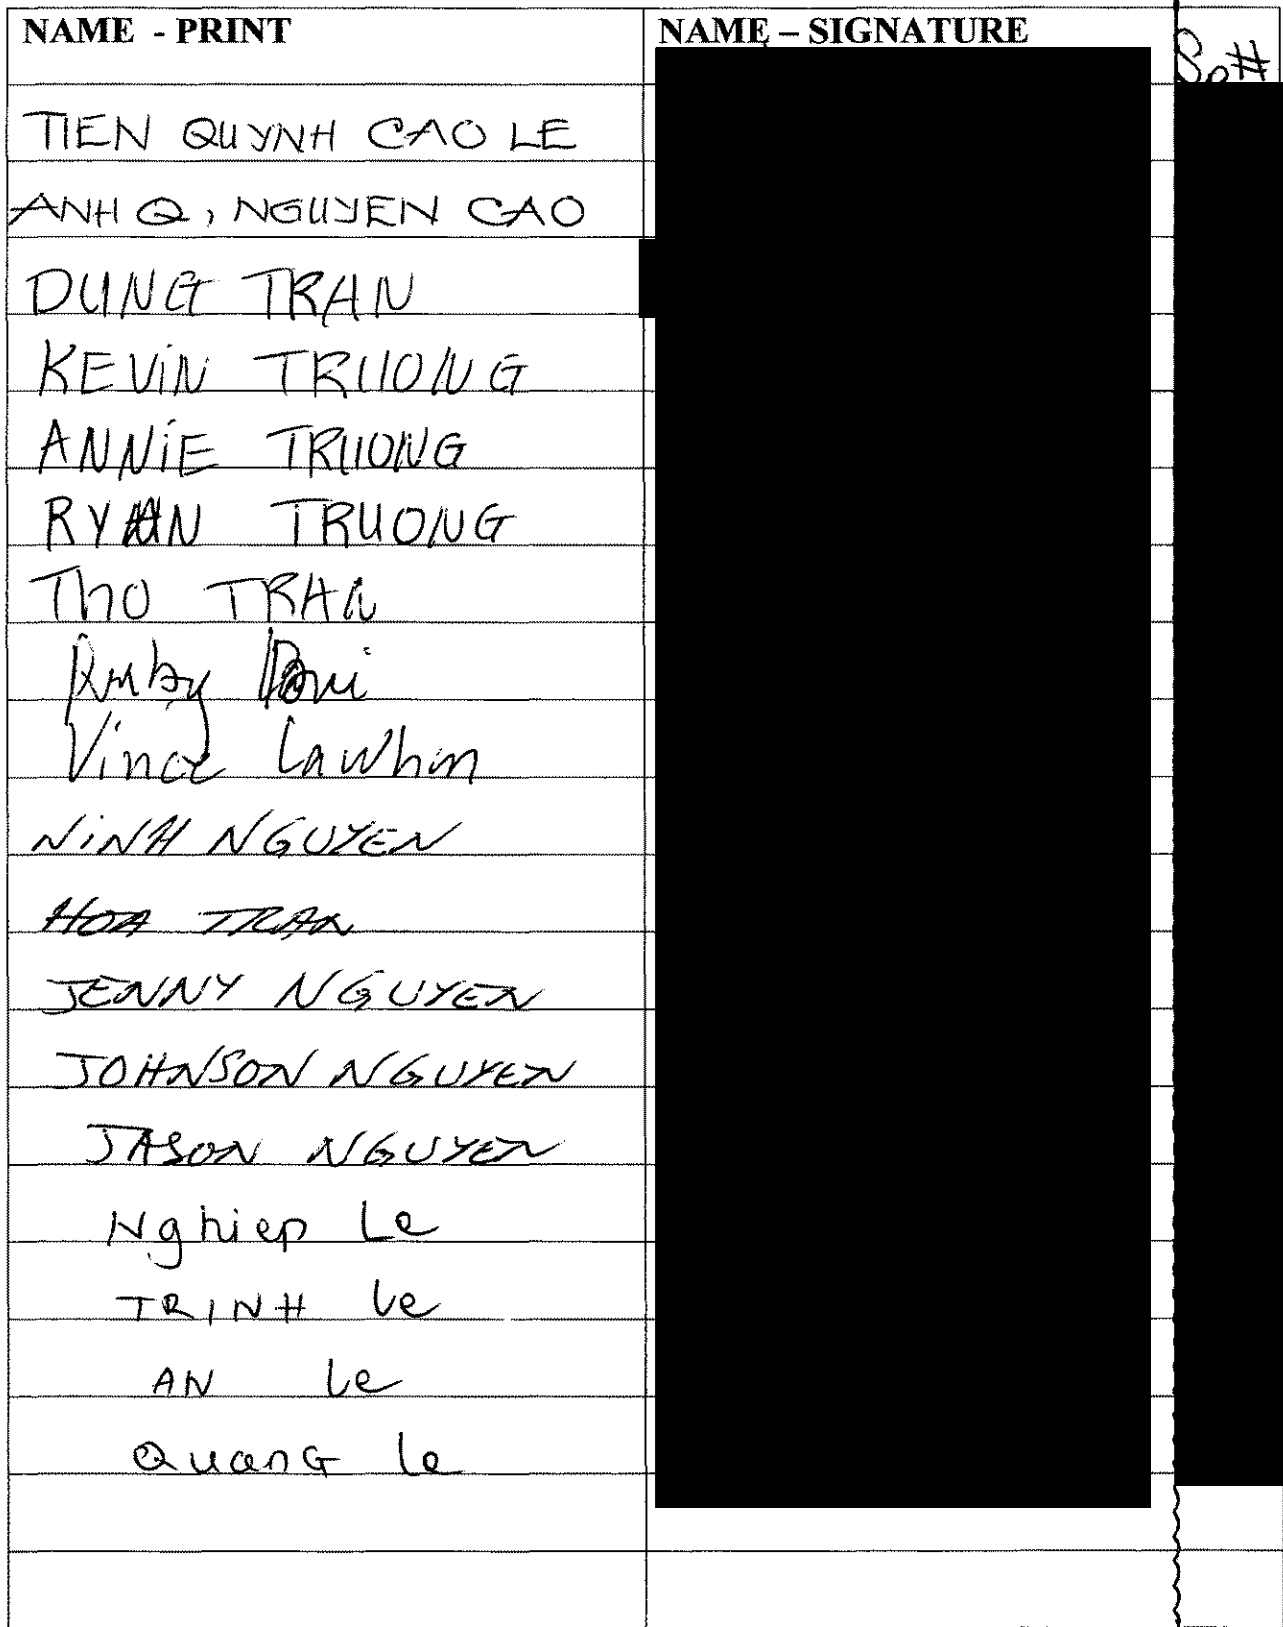 NAME - PRINT NAME – SIGNATURE So#
TIEN QUYNH CAO LE
ANH Q, NGUYEN CAO
DUNG TRAN
KEVIN TRUONG
ANNIE TRUONG
RYAN TRUONG
Tho TRAN
Ruby
Vince Lawhm
NINH NGUYEN
HOA TRAN
JENNY NGUYEN
JOHNSON NGUYEN
JASON NGUYEN
Nghiep Le
TRINH Le
AN Le
QuanG Le